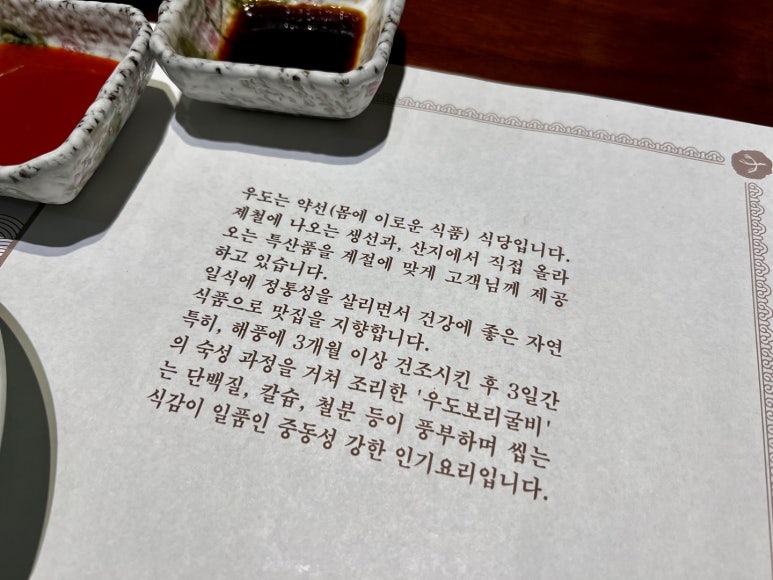 우도는 약선(몸에 이로운 식품) 식당입니다.
제철에 나오는 생선과, 산지에서 직접 올라
오는 특산품을 계절에 맞게 고객님께 제공
하고 있습니다.
일식에 정통성을 살리면서 건강에 좋은 자연
식품으로 맛집을 지향합니다.
특히, 해풍에 3개월 이상 건조시킨 후 3일간
의 숙성 과정을 거쳐 조리한 '우도보리굴비'
는 단백질, 칼슘, 철분 등이 풍부하며 씹는
식감이 일품인 중동성 강한 인기요리입니다.